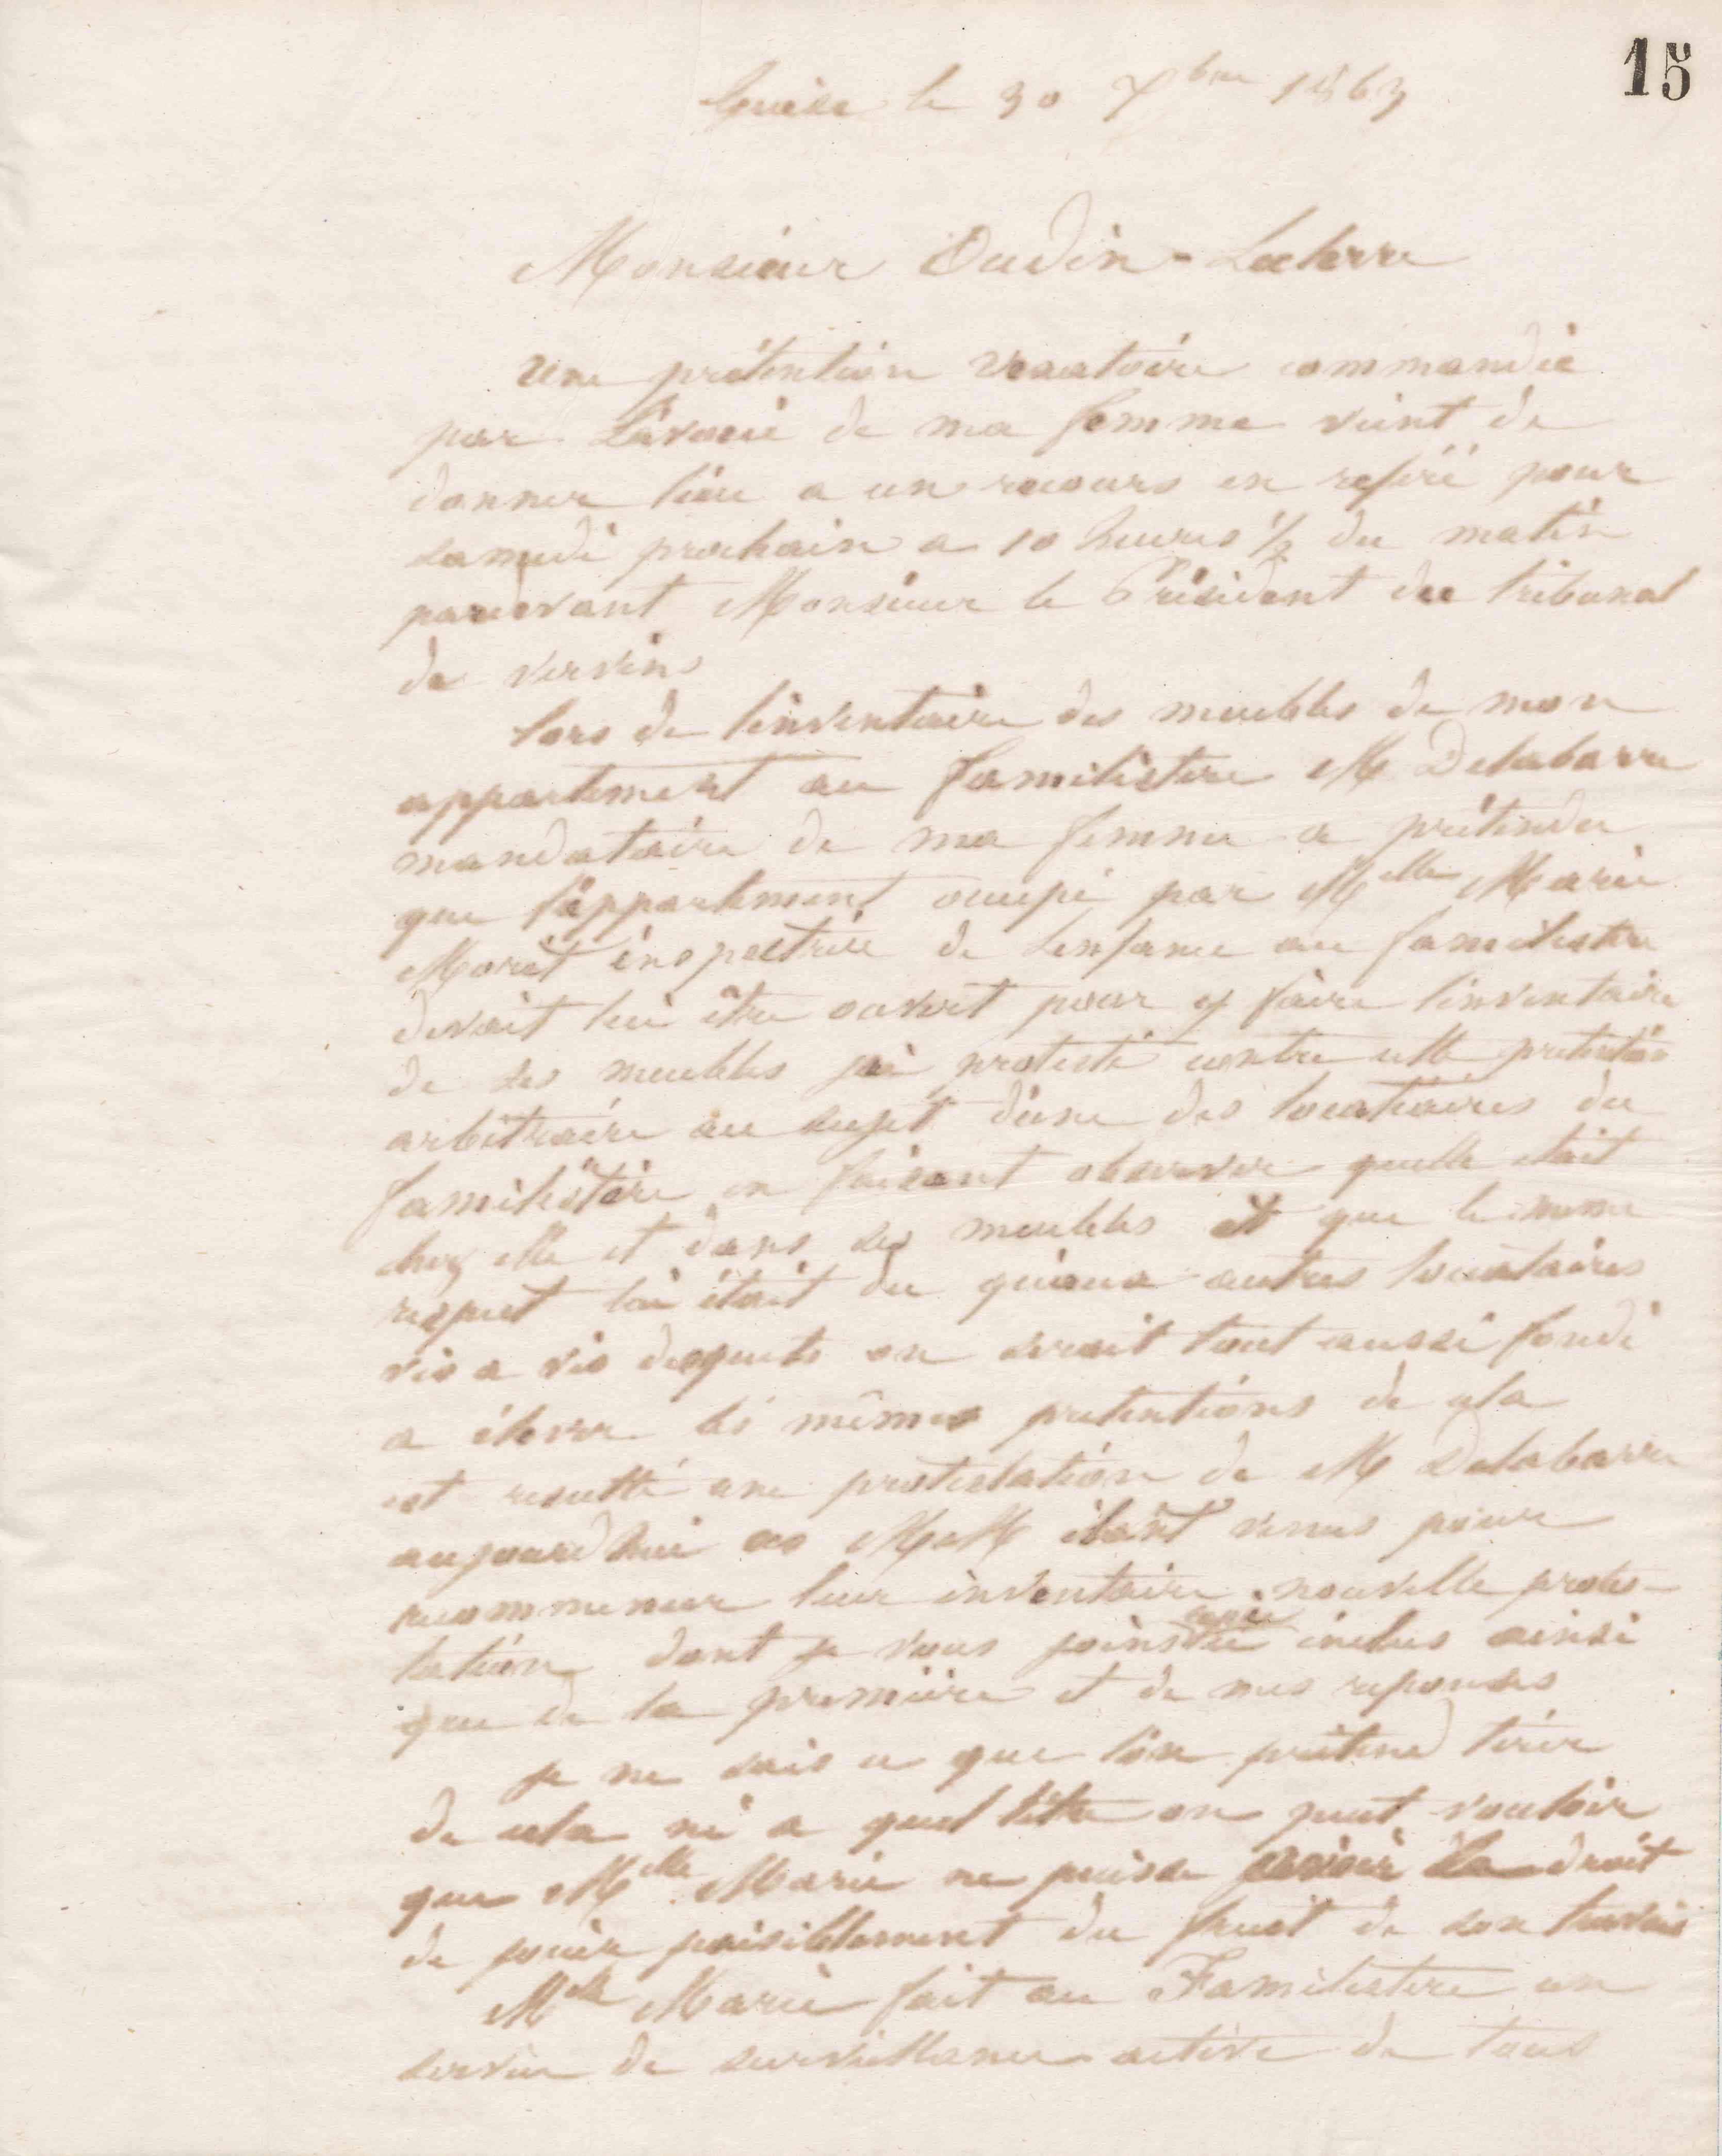 15
Guise le 30 Xbre 1863
Monsieur Oudin-Leclerre
Une prétention vexatoire commandée
par l'avoué de ma femme vient de
donner lieu a un recours en référé pour
samedi prochain a 10 heures ½ du matin
pardevant Monsieur le Président du tribunal
de vervins
lors de linventaire des meubles de mon
appartement au familistere M Delabarre
mandataire de ma femme a prétendu
que l'appartement occupé par Melle Marie
Moret inspectrice de lenfance au familistere
devait lui être ouvert pour y faire linventaire
de ses meubles jai protesté contre cette prétention
arbitraire au sujet d'une des locataires du
familistère en faisant observer quelle était
chez elle et dans ses meubles et que le meme
respect lui était du quiaux autres locataires
vis a vis desquels on serait tout aussi fondé
a élever les mêmes pretentions de cela
est resulté une protestation de M Delabarre
aujourdhui ces MM étant venus pour
recommencer leur inventaire nouvelle protes-
tation dont je vous joins copie inclus ainsi
que de la première et de mes reponses
je ne sais ce que l'on prétend tirer
de cela ni a quel titre on peut vouloir
que Melle Marie ne puisse avoir le droit
de jouir paisiblement du fruit de son travail
Melle Marie fait au Familistere un
service de surveillance active de tous